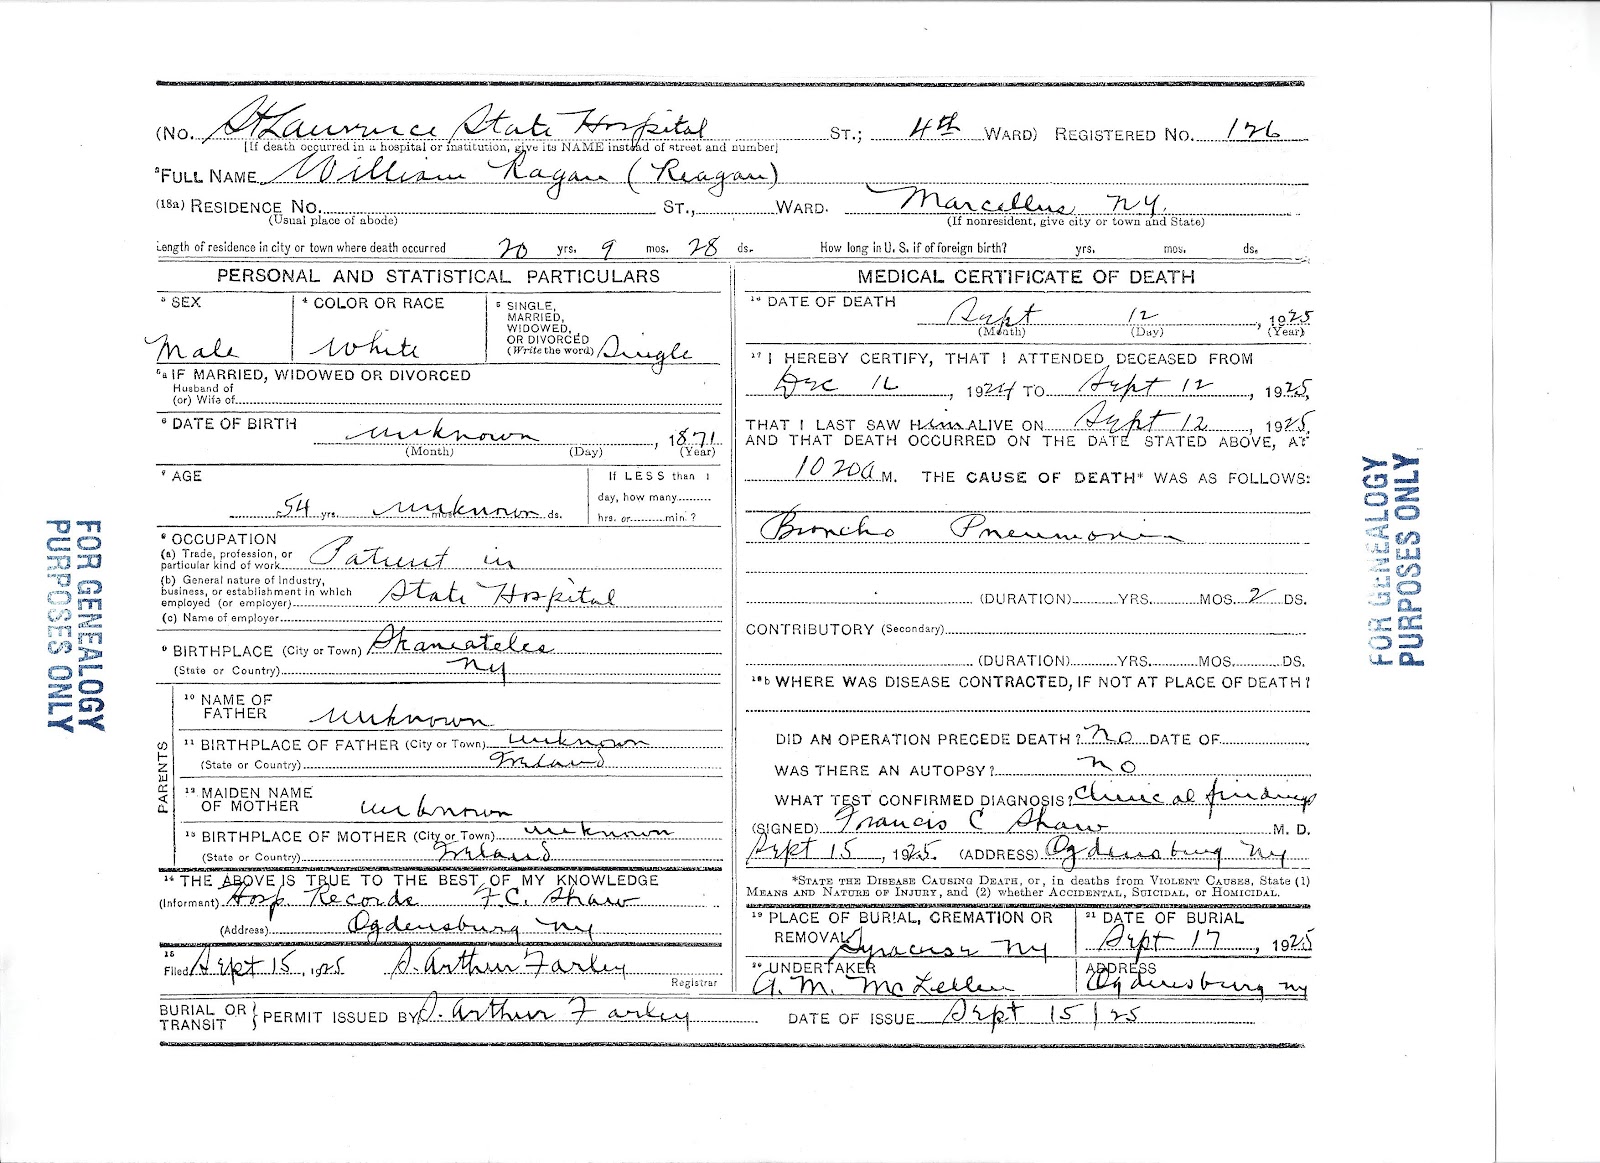 (No. St Lawrence State Hospital St.; 4th Ward) Registered No. 126
[If death occurred in a hospital or institution, give its NAME instead of street and number]
2 Full Name William Ragan (Reagan)
(18a) Residence No. St., Ward. Marcellus NY.
(Usual place of abode) (If nonresident, give city or town and State)
Length of residence in city or town where death occurred 20 yrs. 9 mos. 28 ds. How long in U. S. if of foreign birth? yrs. mos. ds.
PERSONAL AND STATISTICAL PARTICULARS
3 SEX
Male
4 COLOR OR RACE
White
5 SINGLE,
MARRIED,
WIDOWED,
OR DIVORCED
(Write the word) Single
5a IF MARRIED, WIDOWED OR DIVORCED
Husband of
(or) Wife of
6 DATE OF BIRTH
unknown, 1871
(Month) (Day) (Year)
7 AGE
54 yrs. unknown mos. ds.
If LESS than 1
day, how many
hrs. or min.?
8 OCCUPATION
(a) Trade, profession, or
particular kind of work Patient in
(b) General nature of industry,
business, or establishment in which
employed (or employer) State Hospital
(c) Name of employer
9 BIRTHPLACE (City or Town) Skaneateles
(State or Country) NY
PARENTS
10 NAME OF
FATHER unknown
11 BIRTHPLACE OF FATHER (City or Town) unknown
(State or Country) Ireland
12 MAIDEN NAME
OF MOTHER unknown
13 BIRTHPLACE OF MOTHER (City or Town) unknown
(State or Country) Ireland
14 THE ABOVE IS TRUE TO THE BEST OF MY KNOWLEDGE
(Informant) Hosp Records F.C. Shaw
(Address) Ogdensburg NY
15
Filed Sept 15, 1925 S. Arthur Farley
Registrar
MEDICAL CERTIFICATE OF DEATH
16 DATE OF DEATH
Sept 12, 1925
(Month) (Day) (Year)
17 I HEREBY CERTIFY, THAT I ATTENDED DECEASED FROM
Dec 16, 1924 TO Sept 12, 1925,
THAT I LAST SAW Him ALIVE ON Sept 12, 1925,
AND THAT DEATH OCCURRED ON THE DATE STATED ABOVE, AT
10 20 A M. THE CAUSE OF DEATH* WAS AS FOLLOWS:
Broncho Pneumonia
(DURATION) YRS. MOS. 2 DS.
CONTRIBUTORY (Secondary)
(DURATION) YRS. MOS. DS.
18b WHERE WAS DISEASE CONTRACTED, IF NOT AT PLACE OF DEATH?
DID AN OPERATION PRECEDE DEATH? No DATE OF
WAS THERE AN AUTOPSY? no
WHAT TEST CONFIRMED DIAGNOSIS? Clinical findings
(SIGNED) Francis C Shaw M. D.
Sept 15, 1925. (ADDRESS) Ogdensburg NY
*State the Disease Causing Death, or, in deaths from Violent Causes, State (1)
Means and Nature of Injury, and (2) whether Accidental, Suicidal, or Homicidal.
19 PLACE OF BURIAL, CREMATION OR
REMOVAL Syracuse NY
21 DATE OF BURIAL
Sept 17, 1925
20 UNDERTAKER
A. M. McLellan
ADDRESS
Ogdensburg NY
BURIAL OR
TRANSIT } PERMIT ISSUED BY S. Arthur Farley DATE OF ISSUE Sept 15/25
FOR GENEALOGY
PURPOSES ONLY
FOR GENEALOGY
PURPOSES ONLY